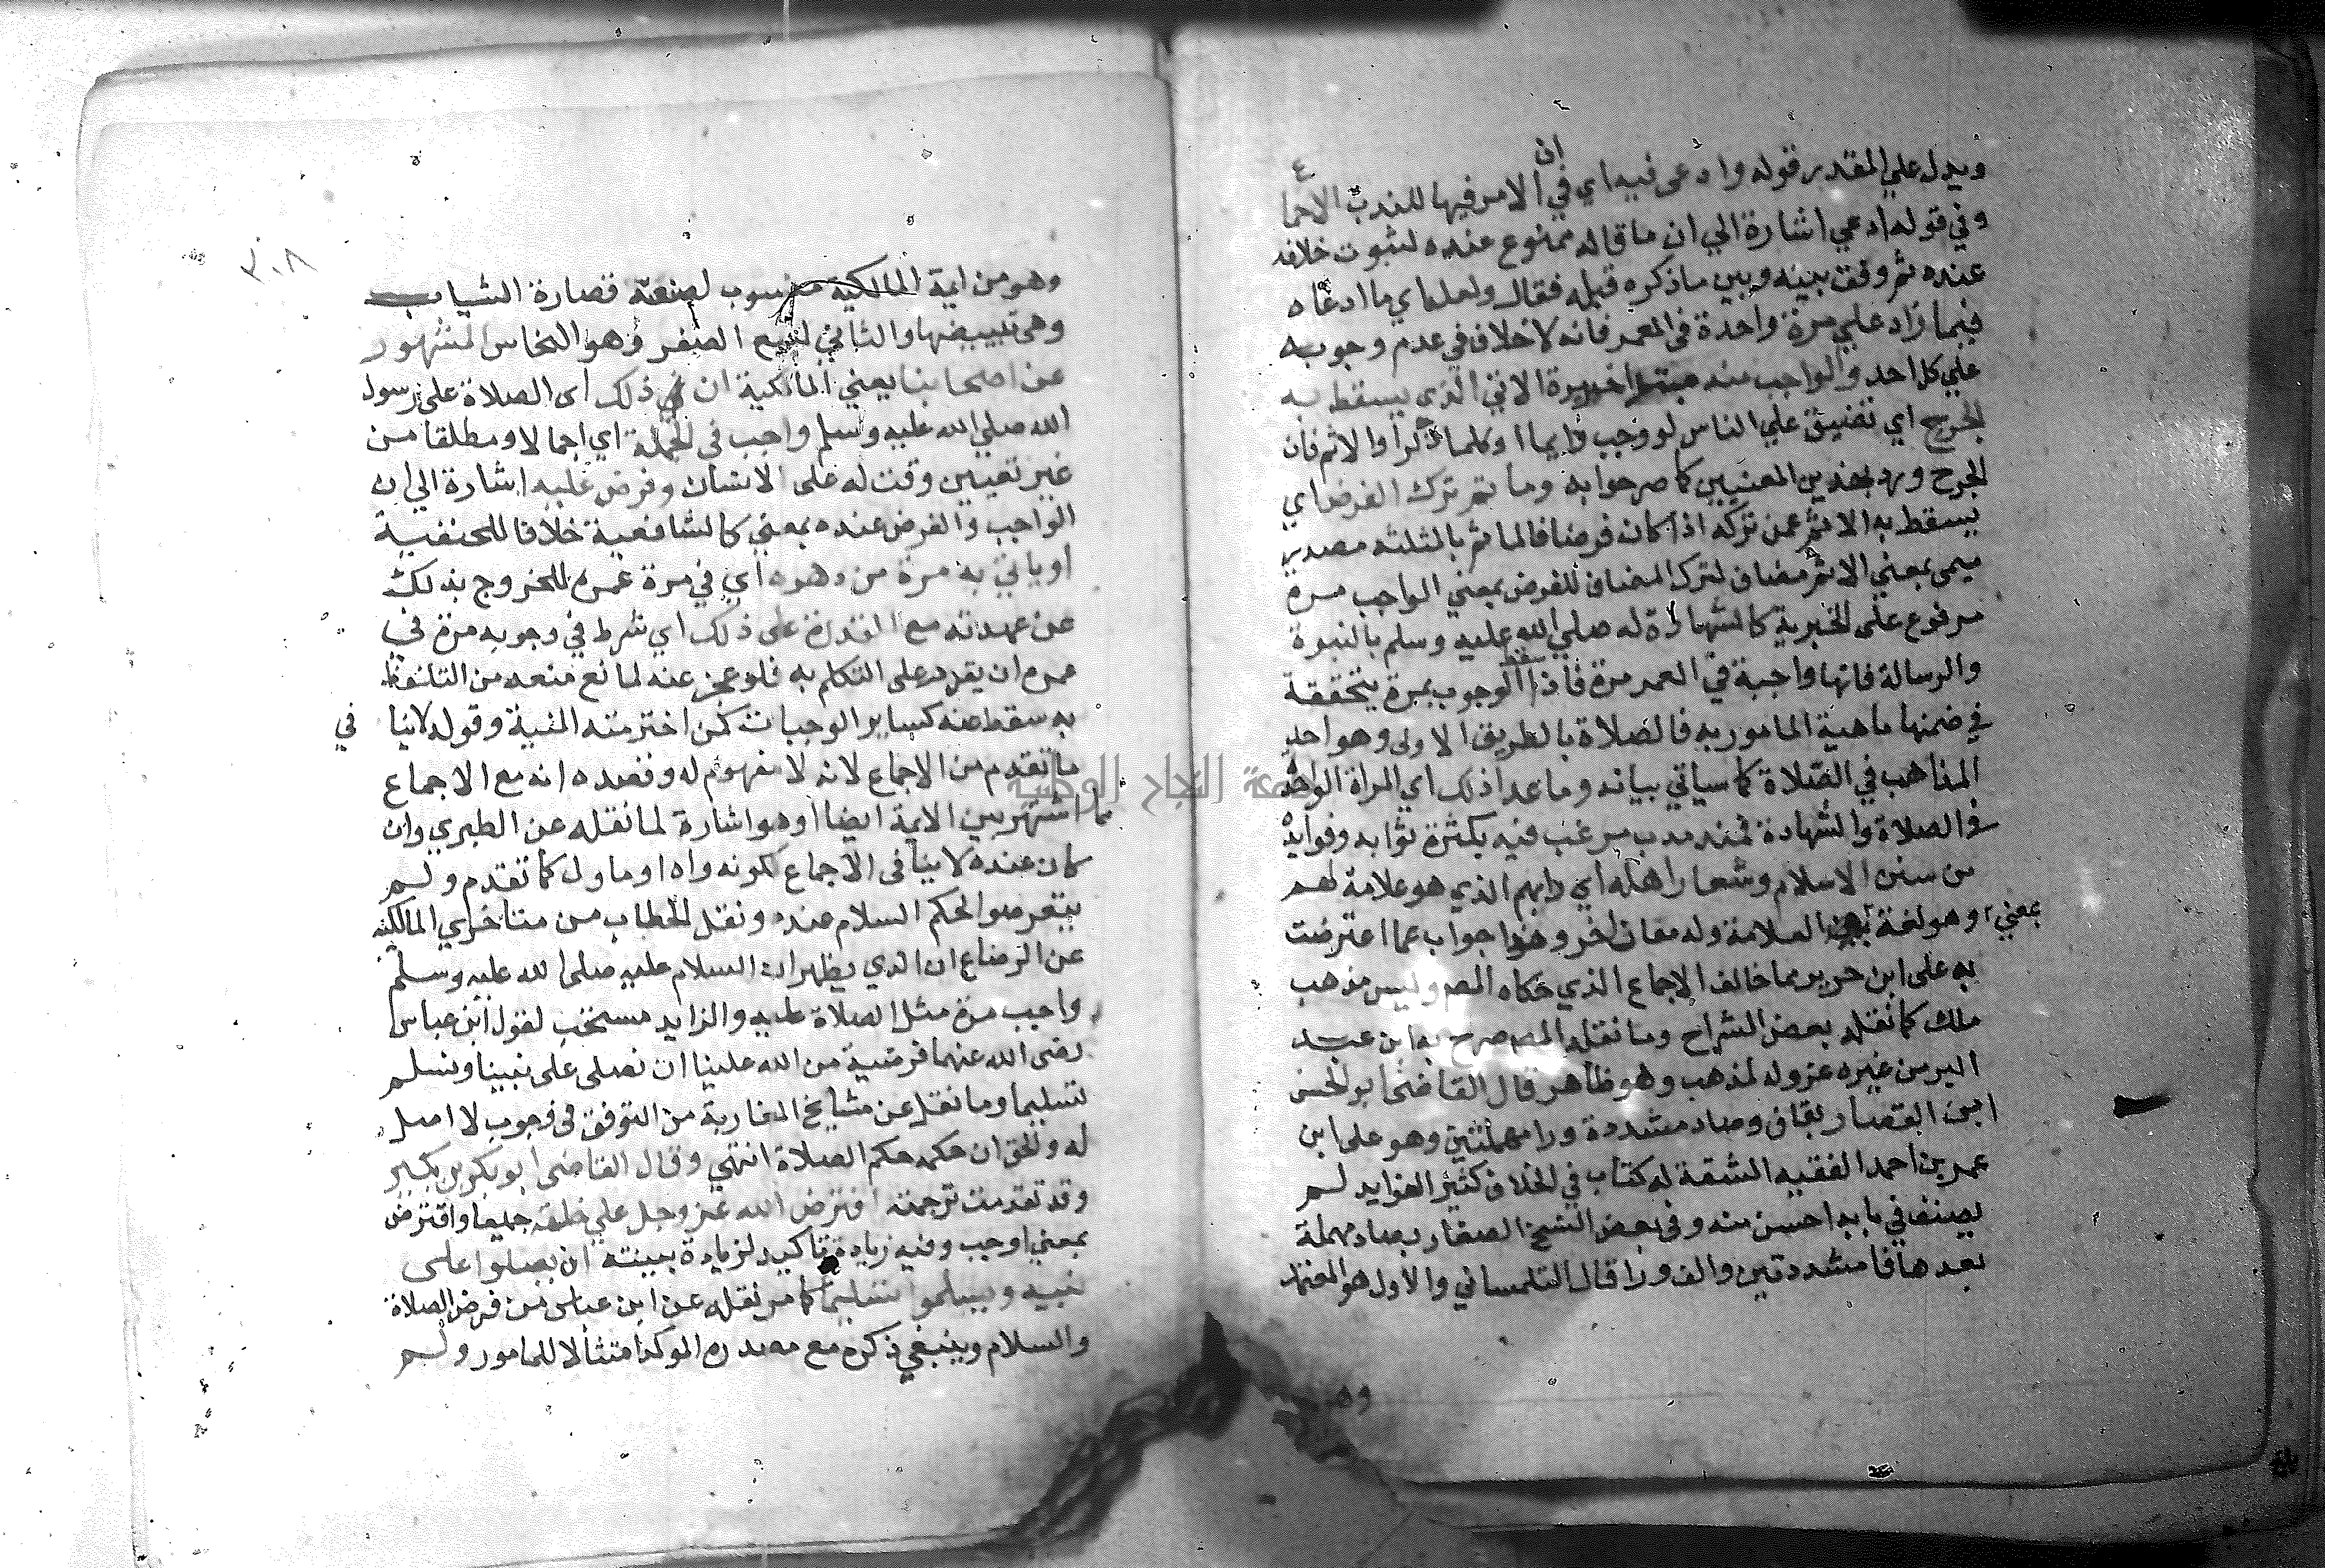 ويدل علي المقدر قوله وادعى فيه اي في ان الامر فيها للندب الاجماع
وفي قوله ادعي اشارة الي ان ما قاله ممنوع عنده لثبوت خلافه
عنده ثم وفق بينه وبين ما ذكره قبله فقال ولعله اي ما ادعاه
فيما زاد علي مرة واحدة في العمر فانه لا خلاف في عدم وجوبه
علي كل احد والواجب منه الاتي الذي يسقط به
الحرج اي تضييق علي الناس لو وجب دايما او كلما ذكر او الاثم فان
الحرج ورد بهذين المعنيين كما صرحوا به وما ثم ترك الفرض اي
يسقط به الاثم عمن تركه اذا كان فرضا فالماثم بالمثلثه مصدر
ميمي بمعني الاثم مضاف لترك المضاف للفرض بمعني الواجب مرة
مرفوع على الخبرية كالشهادة له صلي الله عليه وسلم بالنبوة
والرسالة فانها واجبة في العمر مرة فاذا سقط الوجوب بمرة يتحققة
في ضمنها ماهية المامور به فالصلاة بالطريق الاولى وهو احد
المذاهب في الصلاة كما سياتي بيانه وما عدا ذلك اي المراة الواحدة
في الصلاة والشهادة فمندوب مرغب فيه بكثرة ثوابه وفوايده
من سنن الاسلام وشعار اهله اي دابهم الذي هو علامة لهم
وهو لغة بمعني العلامة وله معان اخر وهذا جواب عما اعترضت
به على ابن جرير مما خالف الاجماع الذي حكاه المصـ وليس مذهب
ملك كما نقله بعض الشراح وما نقله المصـ صرح به ابن عبد
البر من غيره عزوله لمذهب وهو ظاهر قال القاضي ابو الحسن
ابن القصار بقاف وصاد مشددة ورا مهملتين وهو على ابن
عمر بن احمد الفقيه الشقة له كتاب في الخلاف كثير الفوايد لم
يصنف في بابه احسن منه وفي بعض النسخ الصفار بصاد مهملة
بعدها فا مشددتين والف ورا قال التلمساني والاول هو المعتمد
وهو
٣٠٨
وهو من ايمة المالكية منسوب لصنعة قصارة الثياب
وهي تبييضها والثاني لبيع الصفر وهو النحاس المشهور
عن اصحابنا يعني المالكية ان ذلك اي الصلاة على رسول
الله صلي الله عليه وسلم واجب في الجملة اي اجمالا ومطلقا من
غير تعيين وقت له على الانسان وفرض عليه اشارة الي ان
الواجب والفرض عنده بمعني كالشافعية خلافا للحنفية
او ياتي به مرة من دهره اي في مرة عمره للخروج بذلك
عن عهدته مع القدرة على ذلك اي شرط في وجوبه مرة في
عمره ان يقدر على التكلم به فلو عجز عنه لمانع منعه من التلفظ
به سقط عنه كساير الوجبات كمن اخترمته المنية وقوله لا ينافي
ما تقدم من الاجماع لانه لا مفهوم له وقصده انه مع الاجماع
مما اشتهر بين الايمة ايضا او هو اشارة لما نقله عن الطبري وان
كان عنده لا ينافى الاجماع لكونه واه او ماول كما تقدم ولم
يتعرضوا لحكم السلام عنده ونقل الحطاب من متاخري المالكية
عن الرصاع ان الذي يظهر ان السلام عليه صلى الله عليه وسلم
واجب مرة مثل الصلاة عليه والزايد مستحب لقول ابن عباس
رضى الله عنهما فرضية من الله علينا ان نصلى على نبينا ونسلم
تسليما وما نقل عن مشايخ المغاربة من التوقف في وجوب لا اصل
له والحق ان حكمه حكم الصلاة انتهي وقال القاضى ابو بكر بن بكير
وقد تقدمت ترجمته افترض الله عز وجل علي خلقه جميعا وافترض
بمعني اوجب وفيه زيادة تاكيد لزيادة بنيته ان يصلوا على
نبيه ويسلموا تسليما كما مر نقله عن ابن عباس من فرض الصلاة
والسلام وينبغي ذكره مع مصدره الموكد امتثالا للمامور ولم